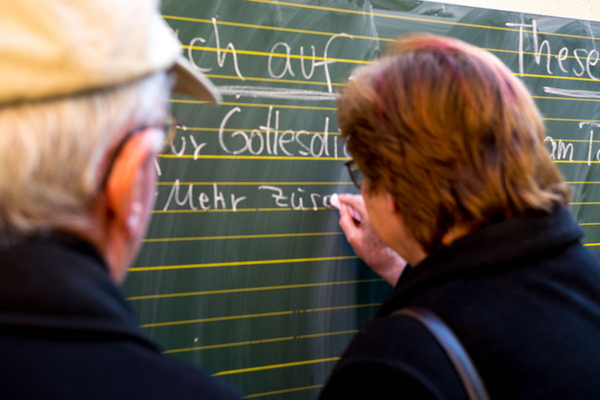 ch auf These
ür Gottesdi am Ta
Mehr Züs